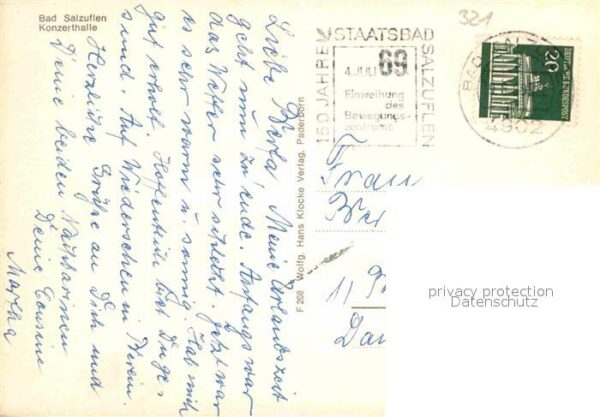 Bad Salzuflen
Konzerthalle
Liebe Berta! Meine Urlaubszeit
geht nun zu ende. Anfangs war
das Wetter sehr schlecht. Jetzt war
es sehr warm u. sonnig. Hab mich
gut erholt. Hoffentlich bist Du ge-
sund. Auf Wiedersehen im Verein.
Herzliche Grüße an Dich und
Deine beiden Nachbarinnen
Deine Cousine
Martha
F 208 Wolfg. Hans Klocke Verlag, Paderborn
321
150 JAHRE STAATSBAD SALZUFLEN
4. JULI 69
Einweihung
des
Bewegungs-
zentrums
4902
20
DEUTSCHE BUNDESPOST
Frau
Ber
11
privacy protection
Datenschutz